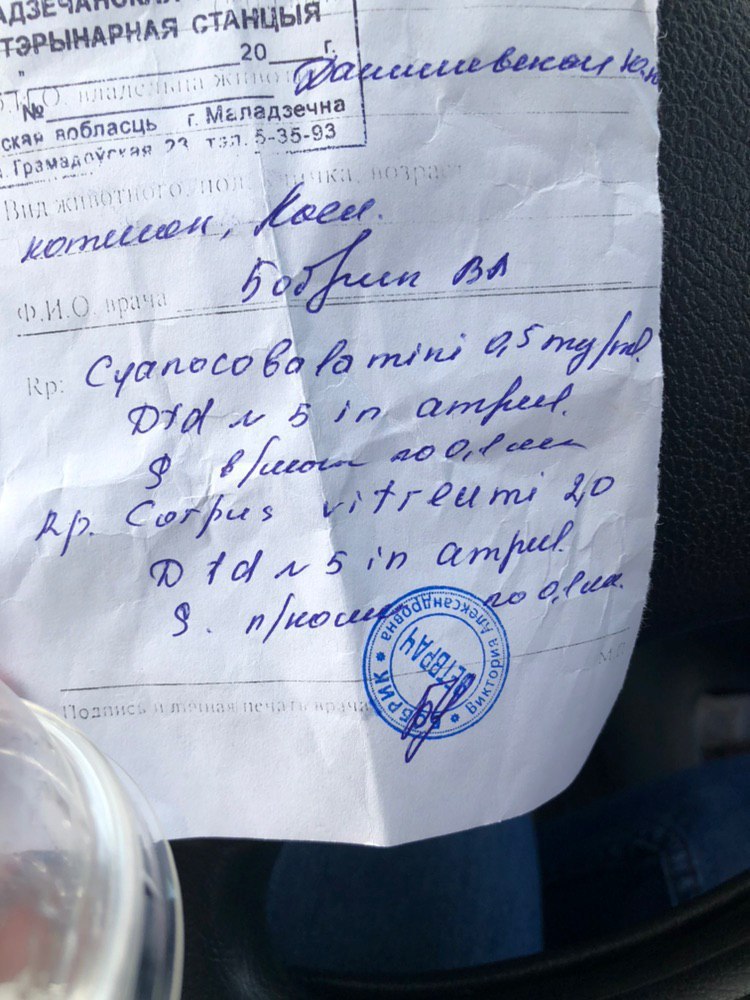 АДЗЕЧАНСКАЯ
ТЭРЫНАРНАЯ СТАНЦЫЯ
" 20 г.
№
ская вобласць г. Маладзечна
Грамадоўская 23 тэл. 5-35-93
Ф.И.О. владельца животного Данилевской Ю.
Вид животного, пол, кличка, возраст
котенок,
Ф.И.О. врача Бобрик ВА
Rp: Cyanocobalamini 0,5 mg/ml.
Dtd N 5 in ampul.
S в/мыш по 0,1 мл
Rp. Corpus vitreumi 2,0
Dtd N 5 in ampul.
S. п/кожн по 0,1 мл.
М.П.
Подпись и личная печать врача
БОБРИК * Виктория Александровна *
ВЕТВРАЧ